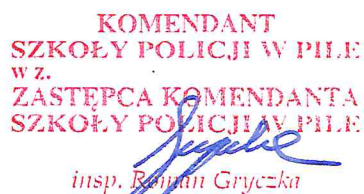 KOMENDANT
SZKOŁY POLICJI W PILE
w z.
ZASTĘPCA KOMENDANTA
SZKOŁY POLICJI W PILE
insp. Roman Gryczka